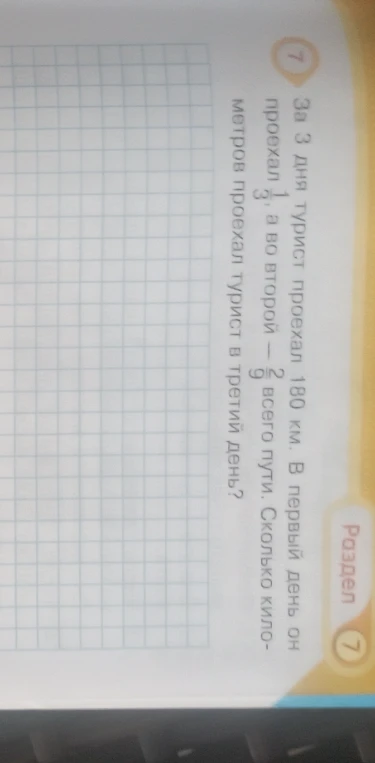 Раздел 7
7 За 3 дня турист проехал 180 км. В первый день он
проехал 1/3, а во второй — 2/9 всего пути. Сколько кило-
метров проехал турист в третий день?